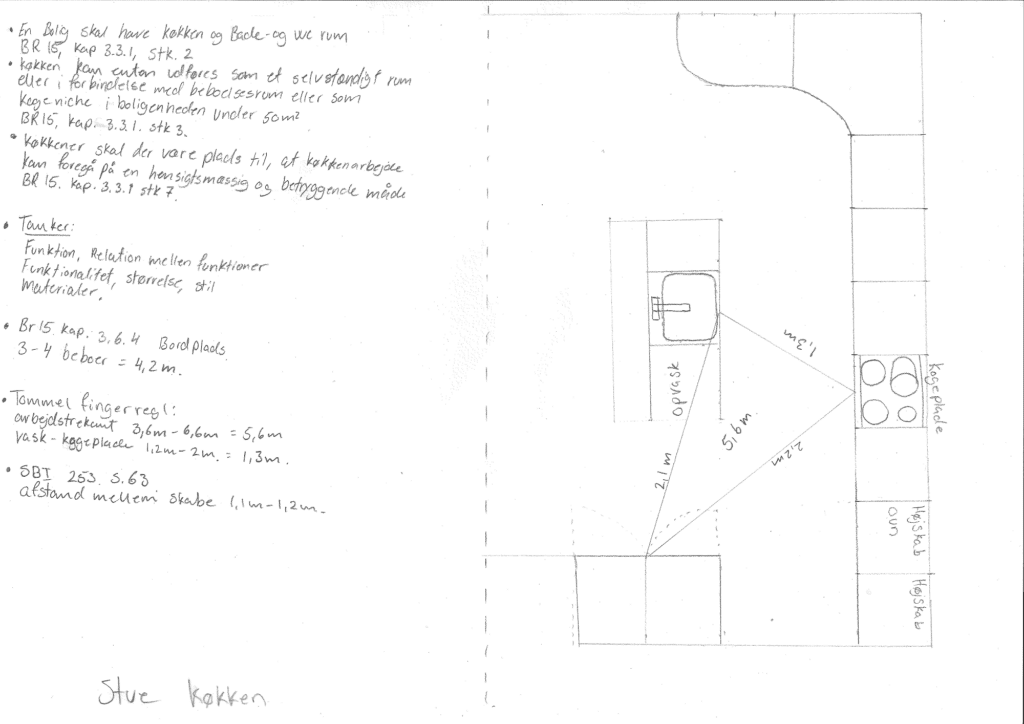 • En Bolig skal have køkken og Bade- og wc rum
BR 15, kap 3.3.1, stk. 2
• køkken kan enten udføres som et selvstændigt rum
eller i forbindelse med beboelsesrum eller som
kogeniche i boligenheden under 50m²
BR15, kap. 3.3.1. stk 3.
• køkkener skal der være plads til, at køkkenarbejde
kan foregå på en hensigtsmæssig og betryggende måde
BR 15. kap. 3.3.1 stk 7.
• Tanker:
Funktion, Relation mellen funktioner
Funktionalitet, størrelse, stil
Materialer.
• Br15. kap. 3.6.4 Bordplads.
3-4 beboer = 4,2m.
• Tommel fingerregl:
arbejdstrekant 3,6m - 6,6m = 5,6m
vask - kogeplade 1,2m - 2m. = 1,3m.
• SBI 253. S.63
afstand mellem skabe 1,1m - 1,2m.
Stue køkken
1,3m
Kogeplade
opvask
5,6m
2,1m
2,2m
Højskab
ovn
Højskab